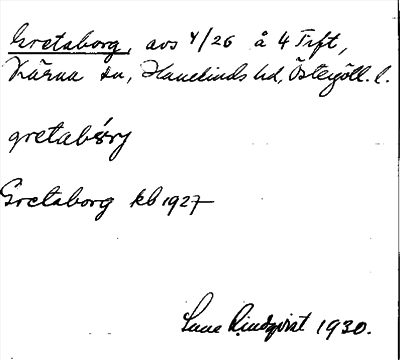 Gretaborg, avs 4/26 å 4 Trft,
Kärna sn, Hanekinds hd, Östergötl. l.
gretabórj
Gretaborg kb 1927
Lindqvist 1930.